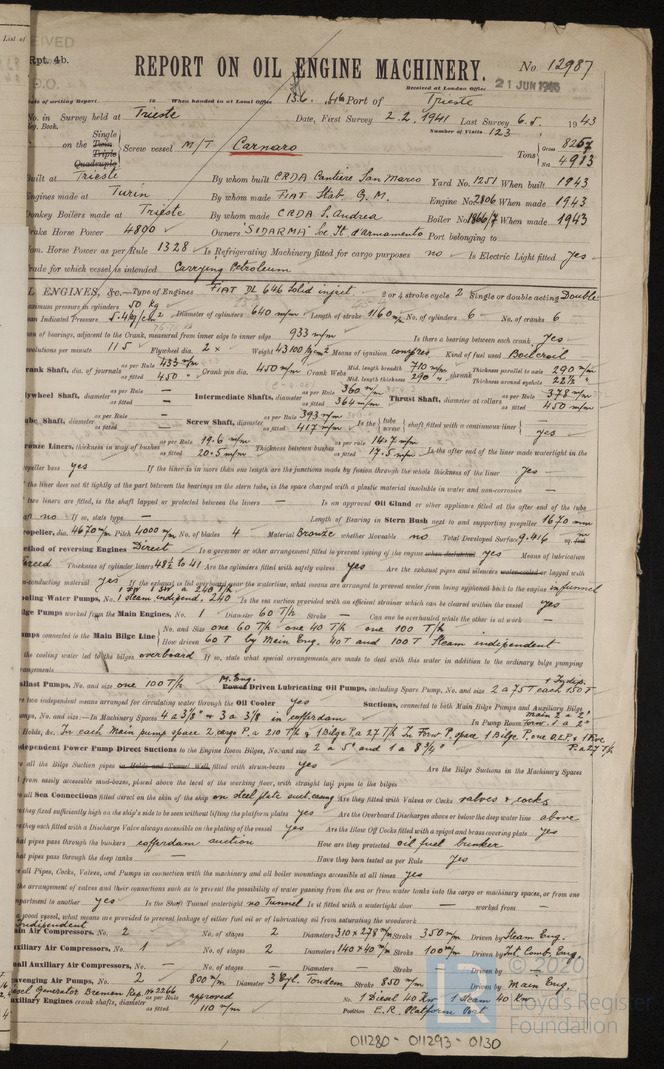 List of
EIVED
Rpt. 4b.
REPORT ON OIL ENGINE MACHINERY.
No. 12987
Received at London Office 21 JUN 1946
Date of writing Report 19 When handed in at Local Office 13.6. 1946 Port of Trieste
No. in Survey held at Trieste Date, First Survey 2.2.1941 Last Survey 6.5. 1943
Reg. Book. Number of Visits 123
Single
on the Twin Triple Quadruple Screw vessel M/T Carnaro Tons Gross 8257 Net 4913
Built at Trieste By whom built CRDA Cantiere San Marco Yard No. 1251 When built 1943
Engines made at Turin By whom made FIAT Stab. G.M. Engine No. 2806 When made 1943
Donkey Boilers made at Trieste By whom made CRDA S. Andrea Boiler No. 1866/7 When made 1943
Brake Horse Power 4800 Owners "SIDARMA" Soc. It. d'armamento Port belonging to
Nom. Horse Power as per Rule 1328 Is Refrigerating Machinery fitted for cargo purposes no Is Electric Light fitted yes
Trade for which vessel is intended Carrying Petroleum
OIL ENGINES, &c.—Type of Engines FIAT DL 646 Solid inject. 2 or 4 stroke cycle 2 Single or double acting Double
Maximum pressure in cylinders 50 kg Diameter of cylinders 640 m/m Length of stroke 1160 m/m No. of cylinders 6 No. of cranks 6
Mean Indicated Pressure 5.4 kg/cm2
Span of bearings, adjacent to the Crank, measured from inner edge to inner edge 933 m/m Is there a bearing between each crank yes
Revolutions per minute 115 Flywheel dia. 2 x Weight 43100 kgm2 Means of ignition compres Kind of fuel used Boileroil
Crank Shaft, dia. of journals as per Rule 433 m/m as fitted 450 " Crank pin dia. 450 m/m Crank Webs Mid. length breadth 710 m/m Mid. length thickness 290 " shrunk Thickness parallel to axis 290 m/m Thickness around eyehole 221½ "
Flywheel Shaft, diameter as per Rule — as fitted — Intermediate Shafts, diameter as per Rule 360 m/m as fitted 364 m/m Thrust Shaft, diameter at collars as per Rule 378 m/m as fitted 450 m/m
Tube Shaft, diameter as per Rule — as fitted — Screw Shaft, diameter as per Rule 393 m/m as fitted 417 m/m Is the tube screw shaft fitted with a continuous liner — yes
Bronze Liners, thickness in way of bushes as per Rule 19.6 m/m as fitted 20.5 m/m Thickness between bushes as per rule 14.7 m/m as fitted 17.5 m/m Is the after end of the liner made watertight in the
propeller boss yes If the liner is in more than one length are the junctions made by fusion through the whole thickness of the liner yes
If the liner does not fit tightly at the part between the bearings in the stern tube, is the space charged with a plastic material insoluble in water and non-corrosive —
If two liners are fitted, is the shaft lapped or protected between the liners — Is an approved Oil Gland or other appliance fitted at the after end of the tube
shaft no If so, state type — Length of Bearing in Stern Bush next to and supporting propeller 1670 mm
Propeller, dia. 4670 m/m Pitch 4000 m/m No. of blades 4 Material Bronze whether Moveable no Total Developed Surface 9.416 sq.
Method of reversing Engines Direct Is a governor or other arrangement fitted to prevent racing of the engine when declutched yes Means of lubrication
forced Thickness of cylinder liners 48½ to 41 Are the cylinders fitted with safety valves yes Are the exhaust pipes and silencers water-cooled or lagged with
non-conducting material yes If the exhaust is led overboard near the waterline, what means are arranged to prevent water from being syphoned back to the engine in funnel
Cooling Water Pumps, No. 1 Steam independ. 240 Is the sea suction provided with an efficient strainer which can be cleared within the vessel yes
Bilge Pumps worked from the Main Engines, No. 1 Diameter 60 T/h Stroke — Can one be overhauled while the other is at work —
Pumps connected to the Main Bilge Line No. and Size one 60 T/h one 40 T/h one 100 T/h
How driven 60 T by Main Eng. 40T and 100 T Steam independent
Is the cooling water led to the bilges overboard If so, state what special arrangements are made to deal with this water in addition to the ordinary bilge pumping
arrangements
Ballast Pumps, No. and size one 100 T/h M. Eng. Power Driven Lubricating Oil Pumps, including Spare Pump, No. and size 2 a 75 T each 1 Indep. 150 T
Are two independent means arranged for circulating water through the Oil Cooler yes Suctions, connected to both Main Bilge Pumps and Auxiliary Bilge
Pumps, No. and size:—In Machinery Spaces 4 a 3⅛" & 3 a 3⅛ in cofferdam In Pump Room main 2 a 2" Forw. 1 a 2"
In Holds, &c. In each Main pump space 2 cargo P. a 210 T/h & 1 Bilge P. a 27 T/h In Forw P. space 1 Bilge P. one O.L.P. & 1 Fire P. a 27 T/h
Independent Power Pump Direct Suctions to the Engine Room Bilges, No. and size 2 a 5" and 1 a 8¾"
Are all the Bilge Suction pipes in Holds and Tunnel Well fitted with strum-boxes yes Are the Bilge Suctions in the Machinery Spaces
led from easily accessible mud-boxes, placed above the level of the working floor, with straight tail pipes to the bilges
Are all Sea Connections fitted direct on the skin of the ship on steel plate suct. casing Are they fitted with Valves or Cocks valves & cocks
Are they fixed sufficiently high on the ship's side to be seen without lifting the platform plates yes Are the Overboard Discharges above or below the deep water line above
Are they each fitted with a Discharge Valve always accessible on the plating of the vessel yes Are the Blow Off Cocks fitted with a spigot and brass covering plate yes
What pipes pass through the bunkers cofferdam suction How are they protected oil fuel bunker
What pipes pass through the deep tanks — Have they been tested as per Rule yes
Are all Pipes, Cocks, Valves, and Pumps in connection with the machinery and all boiler mountings accessible at all times yes
Is the arrangement of valves and their connections such as to prevent the possibility of water passing from the sea or from water tanks into the cargo or machinery spaces, or from one
compartment to another yes Is the Shaft Tunnel watertight no Tunnel Is it fitted with a watertight door — worked from —
If a wood vessel, what means are provided to prevent leakage of either fuel oil or of lubricating oil from saturating the woodwork
Independent
Main Air Compressors, No. 2 No. of stages 2 Diameters 310 x 278 m/m Stroke 350 m/m Driven by Steam Eng.
Auxiliary Air Compressors, No. 1 No. of stages 2 Diameters 140 x 40 m/m Stroke 100 m/m Driven by Int. Comb. Eng.
Small Auxiliary Air Compressors, No. — No. of stages — Diameters — Stroke — Driven by —
Scavenging Air Pumps, No. 2 800 m/m Diameter 3 Cyl. Tandem Stroke 850 m/m Driven by Main Eng.
Diesel Generator Bremen Rep. No 2266
Auxiliary Engines crank shafts, diameter as per Rule approved as fitted 110 m/m No. 1 Diesel 40 Kw 1 Steam 40 Kw Position E.R. Platform Port
© 2020
Lloyd's Register
Foundation
011280-011293-0130